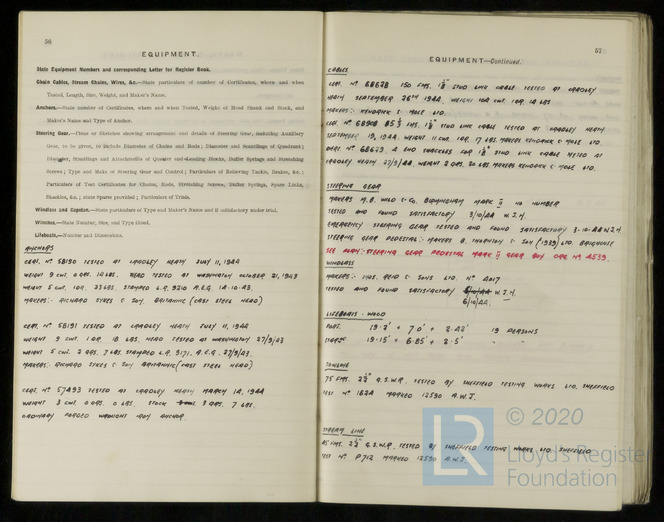 56
EQUIPMENT.
State Equipment Numbers and corresponding Letter for Register Book.
Chain Cables, Stream Chains, Wires, &c.—State particulars of number of Certificates, where and when
Tested, Length, Size, Weight, and Maker's Name.
Anchors.—State number of Certificates, where and when Tested, Weight of Head Shank and Stock, and
Maker's Name and Type of Anchor.
Steering Gear.—Plans or Sketches showing arrangements and details of Steering Gear, including Auxiliary
Gear, to be given, to include Diameter of Chains and Rods; Diameter and Scantlings of Quadrant;
Diameter, Scantlings and Attachments of Quarter and Leading Blocks, Buffer Springs and Stretching
Screws; Type and Make of Steering Gear and Control; Particulars of Relieving Tackle, Brakes, &c.;
Particulars of Test Certificates for Chains, Rods, Stretching Screws, Buffer Springs, Spare Links,
Shackles, &c.; state Spares provided; Particulars of Trials.
Windlass and Capstan.—State particulars of Type and Maker's Name and if satisfactory under trial.
Winches.—State Number, Size, and Type fitted.
Lifeboats.—Number and Dimensions.
ANCHORS
CERT. Nº 58190 TESTED AT CRADLEY HEATH JULY 11, 1944
WEIGHT 9 CWT. 0 QRS. 14 LBS. HEAD TESTED AT WASHINGTON OCTOBER 21, 1943
WEIGHT 5 CWT. 1 QR. 23 LBS. STAMPED L.R. 9210 A.E.G. 14.10.43.
MAKERS:- RICHARD SYKES & SON. BRITANNIC (CAST STEEL HEAD)
CERT. Nº 58191 TESTED AT CRADLEY HEATH JULY 11, 1944
WEIGHT 9 CWT. 1 QR. 18 LBS. HEAD TESTED AT WASHINGTON 27/9/43
WEIGHT 5 CWT. 2 QRS. 7 LBS. STAMPED L.R. 9171. A.E.G. 27/9/43.
MAKERS:- RICHARD SYKES & SON BRITANNIC (CAST STEEL HEAD)
CERT. Nº 57493 TESTED AT CRADLEY HEATH MARCH 14, 1944
WEIGHT 3 CWT. 0 QRS. 0 LBS. STOCK 3 QRS. 7 LBS.
ORDINARY FORGED WROUGHT IRON ANCHOR.
57
EQUIPMENT—Continued.
CABLES
CERT. Nº 68628 150 FMS. 1⅛" STUD LINK CABLE TESTED AT CRADLEY
HEATH SEPTEMBER 26TH 1944. WEIGHT 104 CWT. 1 QR. 14 LBS
MAKERS:- KENDRICK & MOLE LTD.
CERT. Nº 68908 1⅛" STUD LINK CABLE TESTED AT CRADLEY HEATH
SEPTEMBER 19, 1944. WEIGHT 11 CWT. 1 QR. 17 LBS. MAKERS KENDRICK & MOLE LTD
CERT. Nº 68629. 4 END SHACKLES FOR 1⅛" STUD LINK CABLE TESTED AT
CRADLEY HEATH 27/9/44. WEIGHT 2 QRS. 20 LBS MAKERS KENDRICK & MOLE LTD.
STEERING GEAR
MAKERS M.B. WILD & CO. BIRMINGHAM MARK II NO NUMBER
TESTED AND FOUND SATISFACTORY 3/10/44 W.J.H.
EMERGENCY STEERING GEAR TESTED AND FOUND SATISFACTORY 3-10-44 W.J.H.
STEERING GEAR PEDESTAL:- MAKERS B. THORNTON & SON (1939) LTD BRIGHOUSE
SEE PLAN:- STEERING GEAR PEDESTAL MARK II GEAR BOX ORG. Nº A539.
WINDLASS
MAKERS:- THOS. REID & SONS LTD. Nº A017
TESTED AND FOUND SATISFACTORY 5/10/44 W.J.H.
6/10/44.
LIFEBOATS - WOOD
PORT. 19·2' × 7·0' × 2·42' 19 PERSONS
STARBD 19·15' × 6·85' × 2·5' " "
TOWLINE
75 FMS. 2½" G.S.W.R. TESTED BY SHEFFIELD TESTING WORKS LTD. SHEFFIELD
TEST Nº 1624 MARKED 12590 A.W.J.
STREAM LINE
45 FMS. 2½" G.S.W.R. TESTED BY SHEFFIELD TESTING WORKS LTD SHEFFIELD
TEST Nº P712 MARKED 12590 A.W.J.
LR
© 2020
Lloyd's Register
Foundation